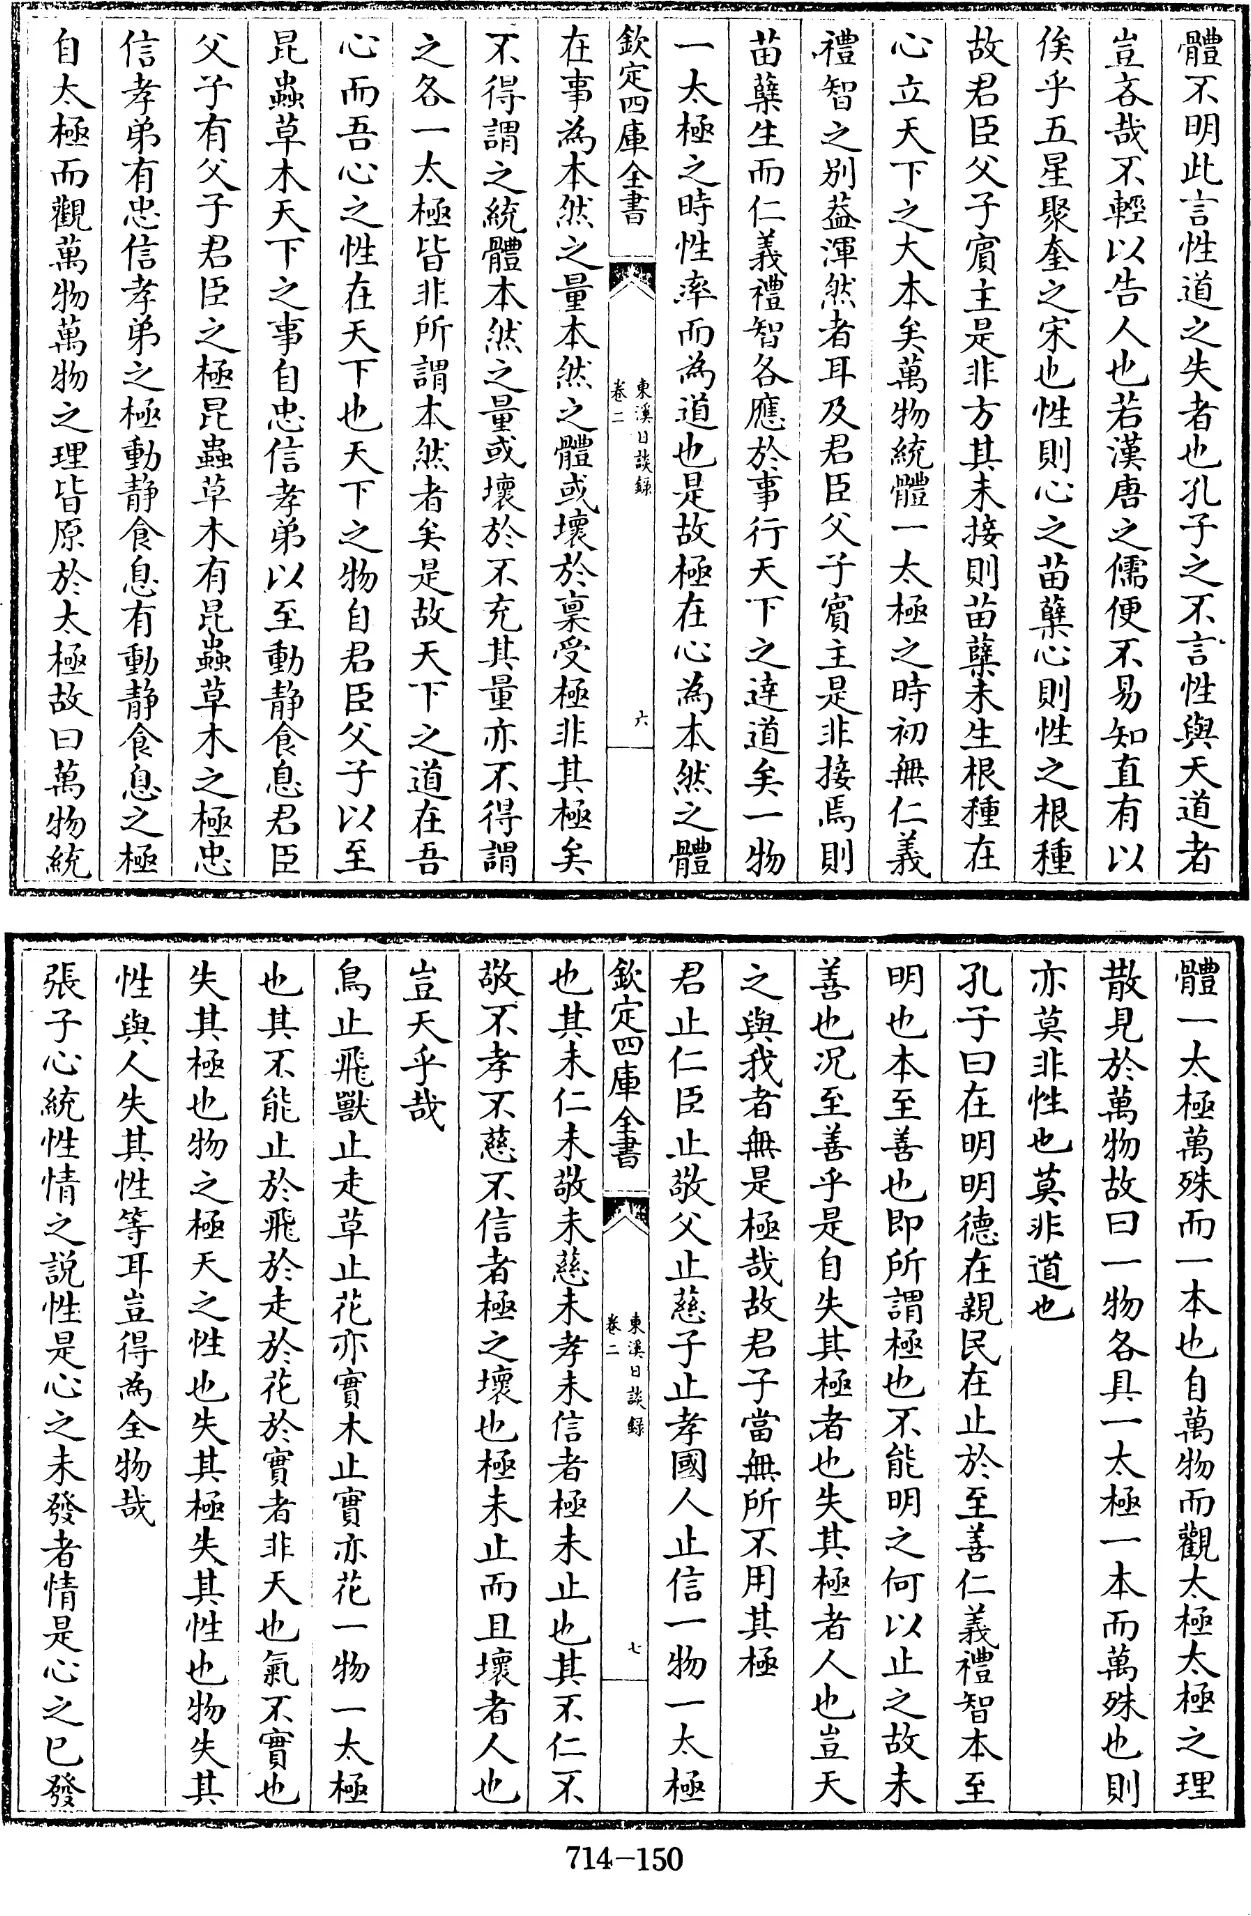 體不明此言性道之失者也孔子之不言性與天道者
豈吝哉不輕以告人也若漢唐之儒便不易知直有以
俟乎五星聚奎之宋也性則心之苗蘖心則性之根種
故君臣父子賓主是非方其未接則苗蘖未生根種在
心立天下之大本矣萬物統體一太極之時初無仁義
禮智之別葢渾然者耳及君臣父子賓主是非接焉則
苗蘖生而仁義禮智各應於事行天下之達道矣一物
一太極之時性率而為道也是故極在心為本然之體
欽定四庫全書
東溪日談録
卷二
六
在事為本然之量本然之體或壞於稟受極非其極矣
不得謂之統體本然之量或壞於不充其量亦不得謂
之各一太極皆非所謂本然者矣是故天下之道在吾
心而吾心之性在天下也天下之物自君臣父子以至
昆蟲草木天下之事自忠信孝弟以至動静食息君臣
父子有父子君臣之極昆蟲草木有昆蟲草木之極忠
信孝弟有忠信孝弟之極動静食息有動静食息之極
自太極而觀萬物萬物之理皆原於太極故曰萬物統
體一太極萬殊而一本也自萬物而觀太極太極之理
散見於萬物故曰一物各具一太極一本而萬殊也則
亦莫非性也莫非道也
孔子曰在明明德在親民在止於至善仁義禮智本至
明也本至善也即所謂極也不能明之何以止之故未
善也况至善乎是自失其極者也失其極者人也豈天
之與我者無是極哉故君子當無所不用其極
君止仁臣止敬父止慈子止孝國人止信一物一太極
欽定四庫全書
東溪日談録
卷二
七
也其未仁未敬未慈未孝未信者極未止也其不仁不
敬不孝不慈不信者極之壞也極未止而且壞者人也
豈天乎哉
鳥止飛獸止走草止花亦實木止實亦花一物一太極
也其不能止於飛於走於花於實者非天也氣不實也
失其極也物之極天之性也失其極失其性也物失其
性與人失其性等耳豈得為全物哉
張子心統性情之説性是心之未發者情是心之已發
714-150